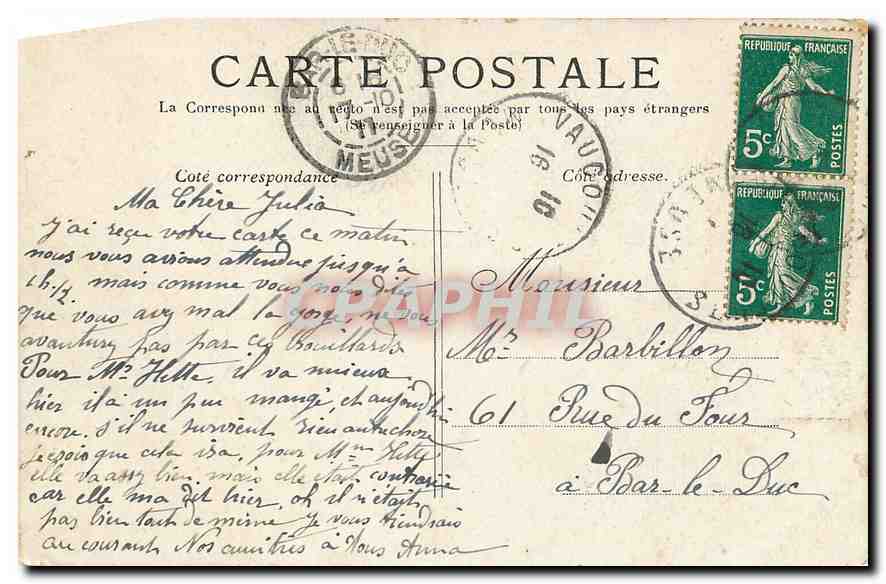 CARTE POSTALE
La Correspondance au recto n'est pas acceptée par tous les pays étrangers
(Se renseigner à la Poste)
Coté correspondance
Côté adresse.
BAR-LE-DUC
17 -10
17
MEUSE
VAUCOU
16
10
REPUBLIQUE FRANÇAISE
5c
POSTES
REPUBLIQUE FRANÇAISE
5c
POSTES
Ma Chère Julia
J'ai reçu votre carte ce matin
nous vous avions attendue jusqu'à
1h½ mais comme vous nous dites
que vous avez mal la gorge ne vous
avanturez pas par ces brouillards
Pour Mr Hette, il va mieux
hier il a un peu mangé et aujourd'hui
encore. S'il ne survient rien autre chose
je crois que cela ira, pour Mme Hette
elle va assez bien mais elle était contrariée
car elle m'a dit hier, oh il n'était
pas bien tout de même je vous tiendrais
au courant Nos amitiés à tous Anna
Monsieur
Mr Barbillon
61 Rue du Four
à Bar-le-Duc
CPAPHIL